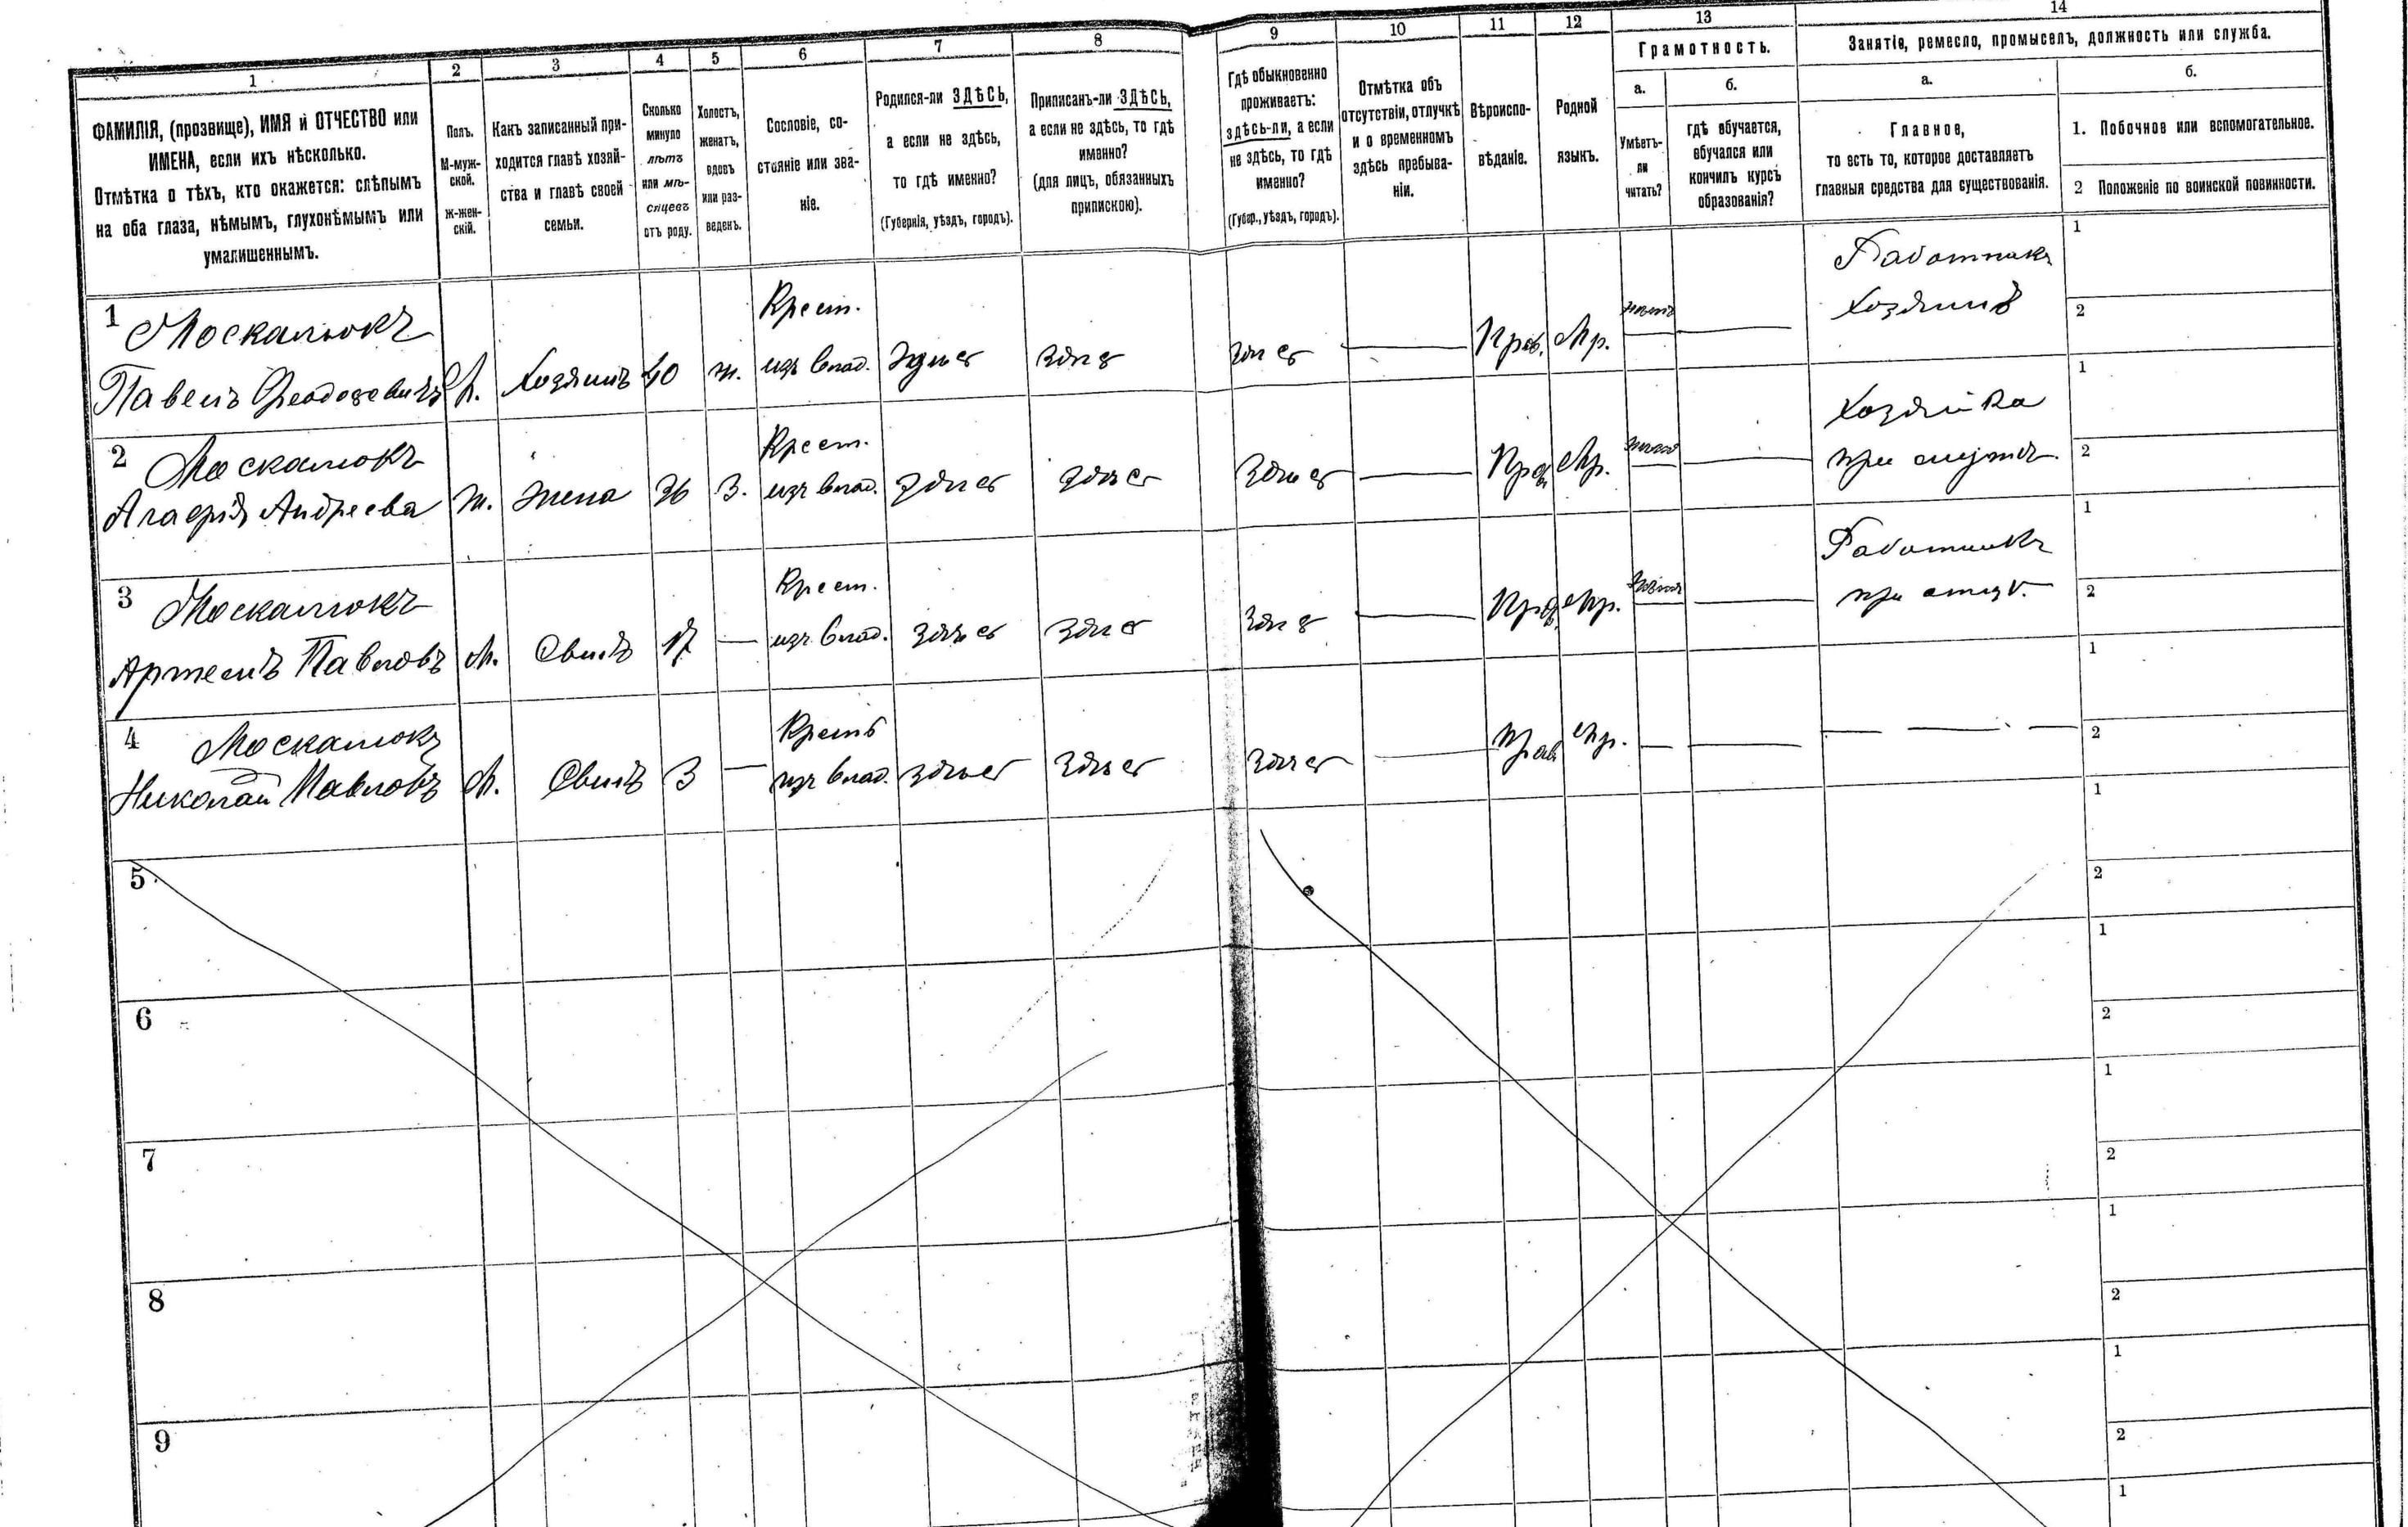 1
2
3
4
5
6
7
8
9
10
11
12
13
14
ФАМИЛІЯ, (прозвище), ИМЯ и ОТЧЕСТВО или
ИМЕНА, если ихъ нѣсколько.
Отмѣтка о тѣхъ, кто окажется: слѣпымъ
на оба глаза, нѣмымъ, глухонѣмымъ или
умалишеннымъ.
Полъ.
М-муж-
ской.
Ж-жен-
скій.
Какъ записанный при-
ходится главѣ хозяй-
ства и главѣ своей
семьи.
Сколько
минуло
лѣтъ
или мѣ-
сяцевъ
отъ роду.
Холостъ,
женатъ,
вдовъ
или раз-
веденъ.
Сословіе, со-
стояніе или зва-
ніе.
Родился-ли ЗДѢСЬ,
а если не здѣсь,
то гдѣ именно?
(Губернія, уѣздъ, городъ).
Приписанъ-ли ЗДѢСЬ,
а если не здѣсь, то гдѣ
именно?
(для лицъ, обязанныхъ
припискою).
Гдѣ обыкновенно
проживаетъ:
здѣсь-ли, а если
не здѣсь, то гдѣ
именно?
(Губер., уѣздъ, городъ).
Отмѣтка объ
отсутствіи, отлучкѣ
и о временномъ
здѣсь пребыва-
ніи.
Вѣроиспо-
вѣданіе.
Родной
языкъ.
Грамотность.
а.
Умѣетъ-
ли
читать?
б.
гдѣ обучается,
обучался или
кончилъ курсъ
образованія?
Занятіе, ремесло, промыселъ, должность или служба.
а.
Главное,
то есть то, которое доставляетъ
главныя средства для существованія.
б.
1. Побочное или вспомогательное.
2 Положеніе по воинской повинности.
1 Москалюкъ
Павелъ Феодосевичъ
М. Хозяинъ 40 ж.
Крест.
изъ влад.
здѣсь здѣсь здѣсь
Прав. Мр. нѣтъ
Работникъ
Хозяинъ
1
2
2 Москалюкъ
Агафія Андреева
Ж. Жена 36 З.
Крест.
изъ влад.
здѣсь здѣсь здѣсь
Прав. Мр. нѣтъ
Хозяйка
при мужѣ.
1
2
3 Москалюкъ
Артемъ Павловъ
М. Сынъ 17 —
Крест.
изъ влад.
здѣсь здѣсь здѣсь
Прав. Мр. нѣтъ
Работникъ
при отцѣ.
1
2
4 Москалюкъ
Николай Павловъ
М. Сынъ 3 —
Крест
изъ влад.
здѣсь здѣсь здѣсь
Прав Мр. — — — — —
1
2
5
1
2
6
1
2
7
1
2
8
1
2
9
1
2
1